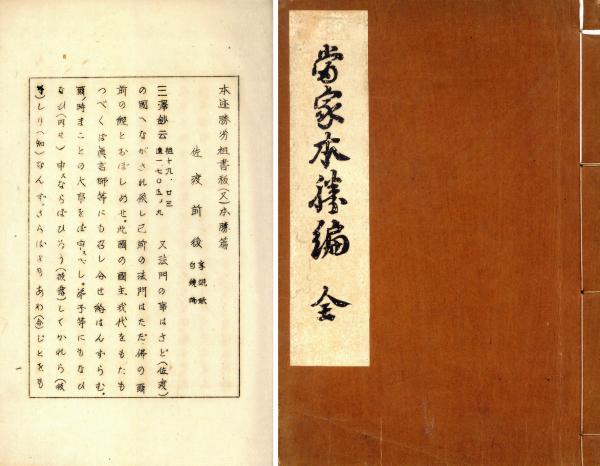 當家本勝編 全
本迹勝劣祖書抜(又)本勝篇
佐渡前後
三澤鈔云 祖十九、廿三 遺一七〇五ノ九 又法門の事はさど(佐渡)
の國へながされ候し已前の法門はただ佛の爾
前の經とをぼしめせ。此國の國主我代をもたも
つべくば眞言師等にも召し合せ給はんずらむ。
爾時まことの大事をば申すべし。弟子等にもなひ
なひ(内々)申すならばひろう(披露)してかれら(彼
等)しり(知)なんず。さらばよもあわ(合)じとをも